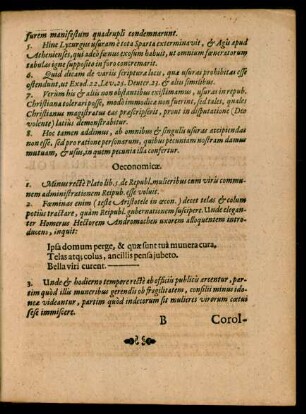 furem manifestum quadrupli condemnarunt.
5. Hinc Lycurgus usuram è tota Sparta exterminavit, & Agis apud
Athenienses, qui adeò fœnus exosum habuit, ut omnium fœneratorum
tabulas igne supposito in foro concremarit.
6. Quid dicam de variis scripturæ locis, qua usuras prohibitas esse
ostendunt, ut Exod. 22. Lev. 25. Deuter. 23. & aliis similibus.
7. Verùm his & aliis non obstantibus existimamus, usuras in repub.
Christiana tolerari posse, modò immodicæ non fuerint, sed tales, quales
Christianus magistratus eas præscripserit, prout in disputatione (Deo
volente) latiùs demonstrabitur.
8. Hoc tamen addimus, ab omnibus & singulis usuras accipiendas
non esse, sed pro ratione personarum, quibus pecuniam nostram damus
mutuam, & usus, in quem pecunia illa confertur.
Oeconomicæ.
1. Minus rectè Plato lib. 5. de Republ. mulieribus cum viris commu-
nem administrationem Reipub. esse voluit.
2. Fœminas enim (teste Aristotele in œcon.) decet telas & colum
potius tractare, quàm Republ. gubernationem suscipere. Unde elegan-
ter Homerus Hectorem Andromachen uxorem alloquentem intro-
ducens, inquit:
Ipsa domum perge, & quæ sunt tua munera cura,
Telas atq; colus, ancillis pensa jubeto.
Bella viri curent.
3. Unde & hodierno tempore rectè ab officiis publicis arcentur, par-
tim quòd illis muneribus gerendis ob fragilitatem, consilii minus ido-
neæ videantur, partim quòd indecorum sit mulieres virorum cœtui
sese immiscere.
B Corol-